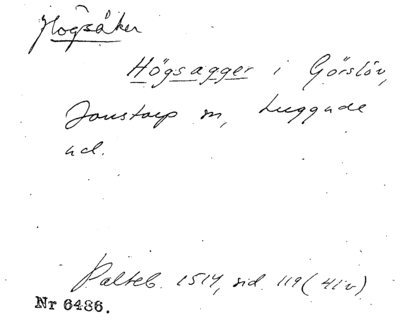 Högsåker
Högsagger i Görslöv,
Jonstorp sn, Luggude
hd.
Palteb. 1514, sid. 119 (41v)
Nr 6486.